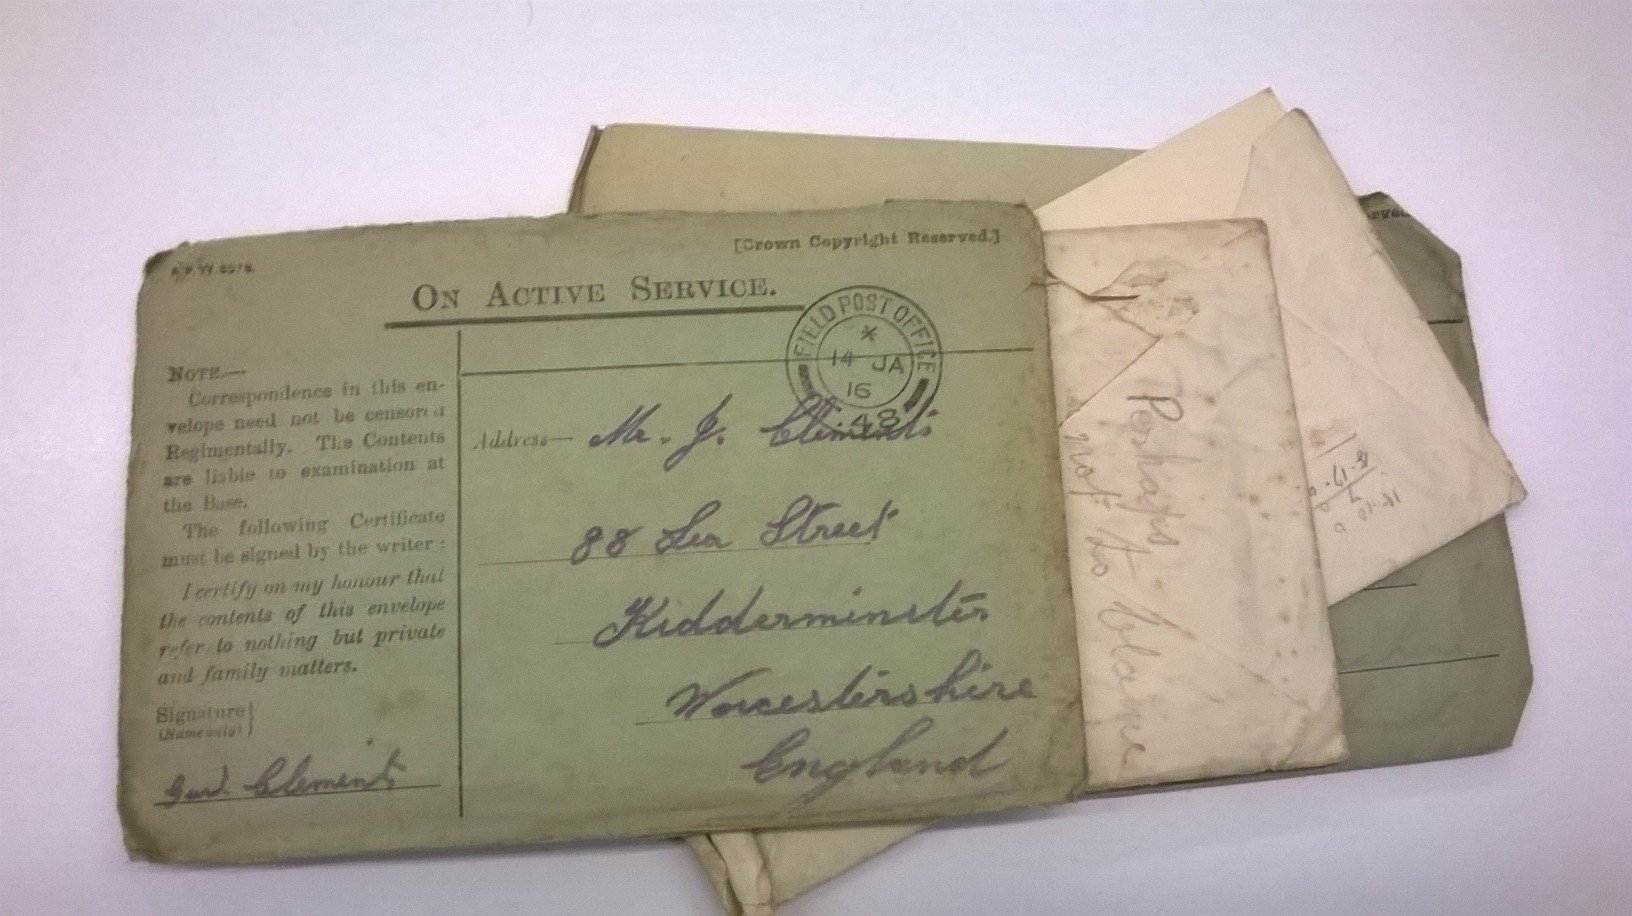 [Crown Copyright Reserved.]
ON ACTIVE SERVICE.
FIELD POST OFFICE
*
14 JA
16
48
NOTE.—
Correspondence in this en-
velope need not be censored
Regimentally. The Contents
are liable to examination at
the Base.
The following Certificate
must be signed by the writer:
I certify on my honour that
the contents of this envelope
refer to nothing but private
and family matters.
Signature
(Name only)
Clements
Address—
Mr. J. Clements
88 Lea Street
Kidderminster
Worcestershire
England
Perhaps
not to blame